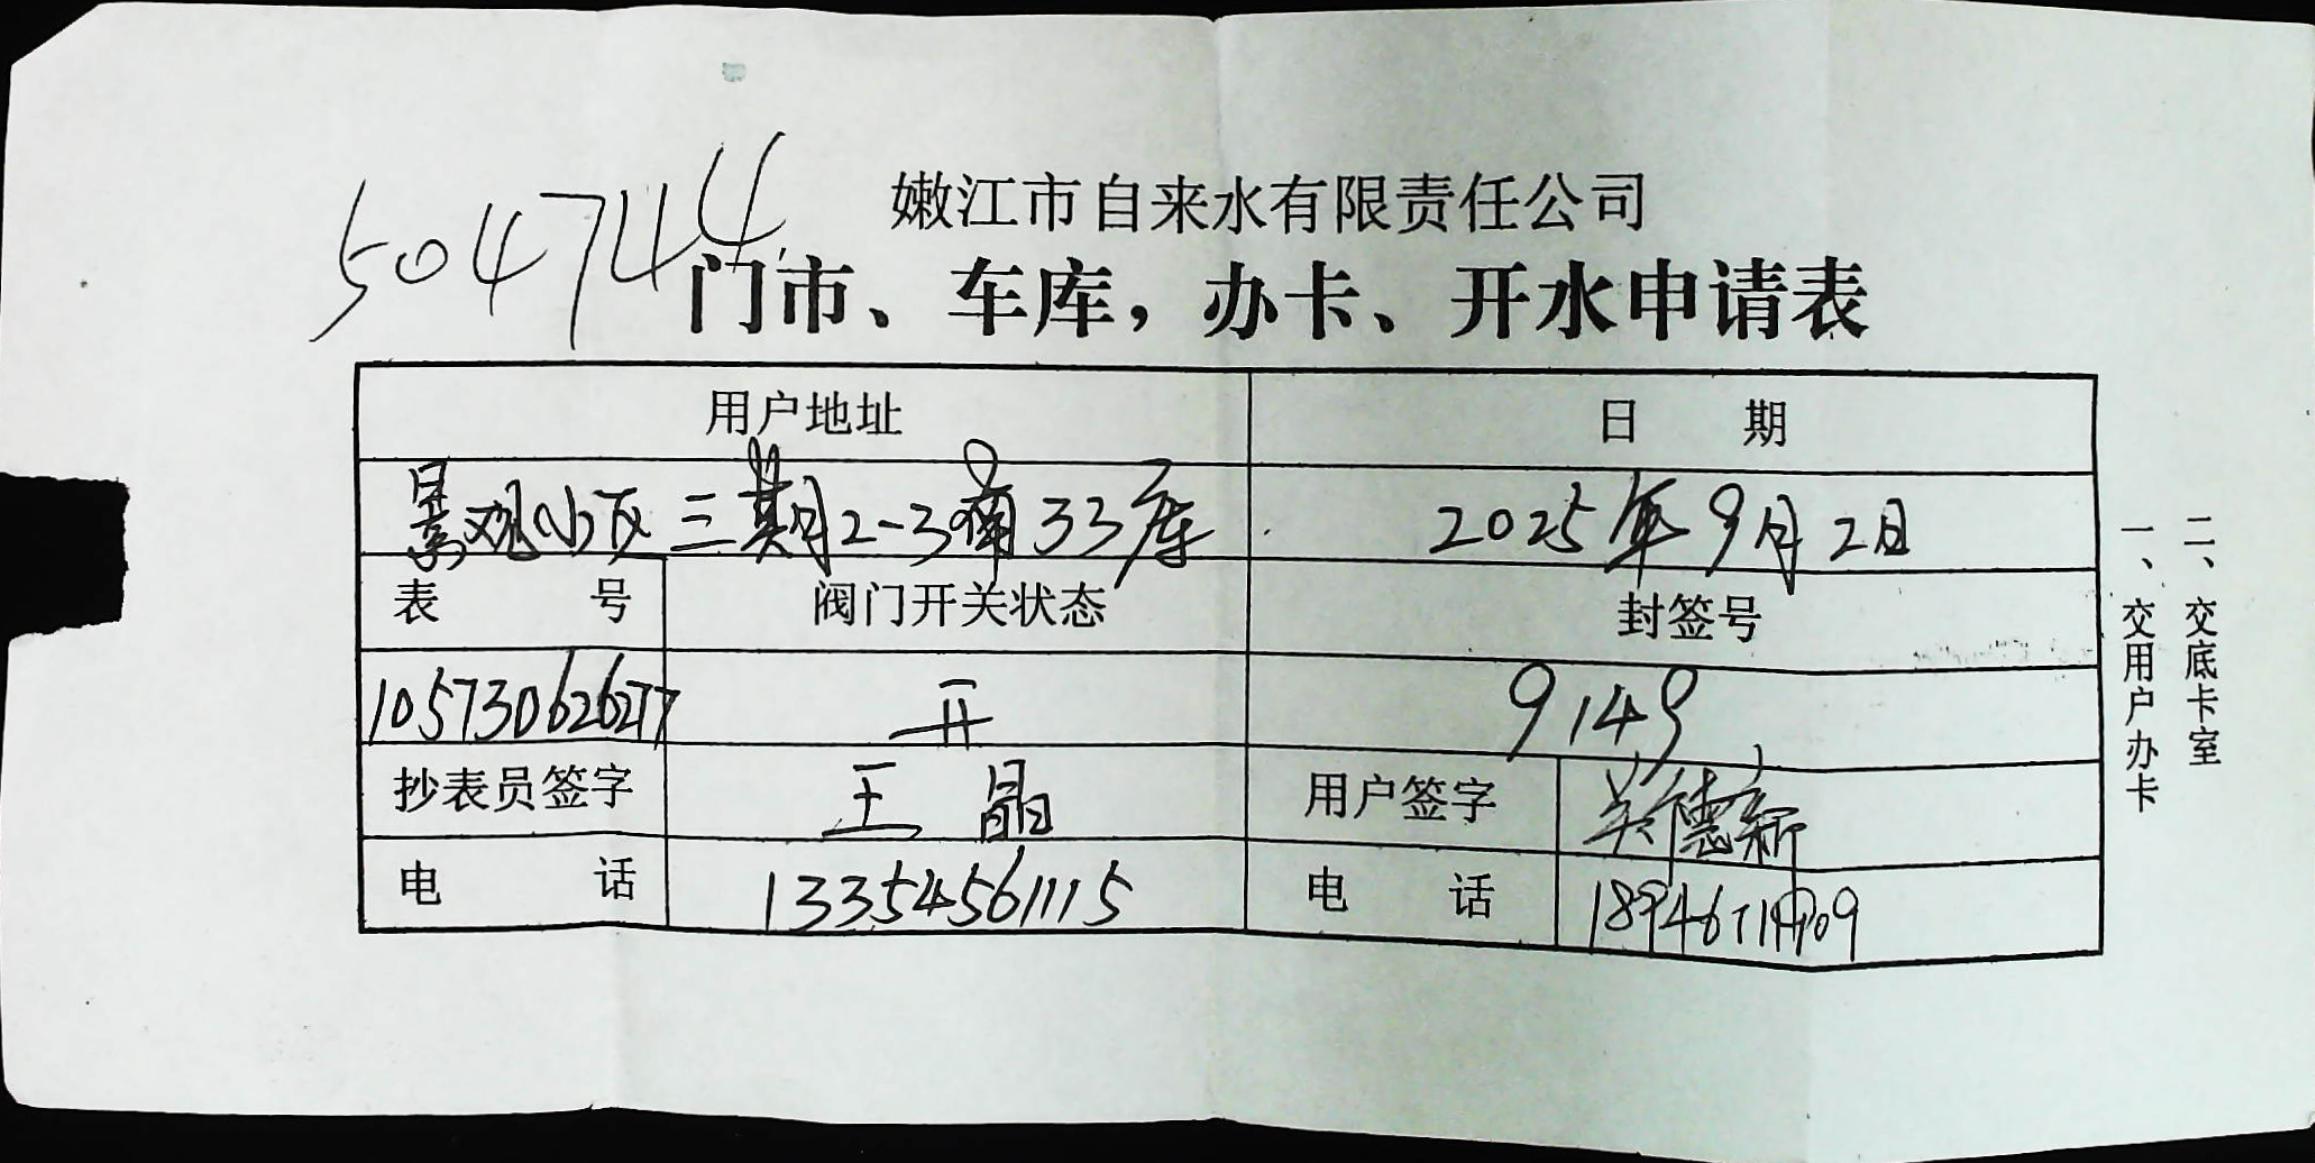 504744
嫩江市自来水有限责任公司
门市、车库，办卡、开水申请表
用户地址 日 期
景观小区三期2-3南33库 2025年9月2日
表 号 阀门开关状态 封签号
105730626277 开 9149
抄表员签字 王晶 用户签字
电 话 13354561115 电 话
一、交用户办卡
二、交底卡室